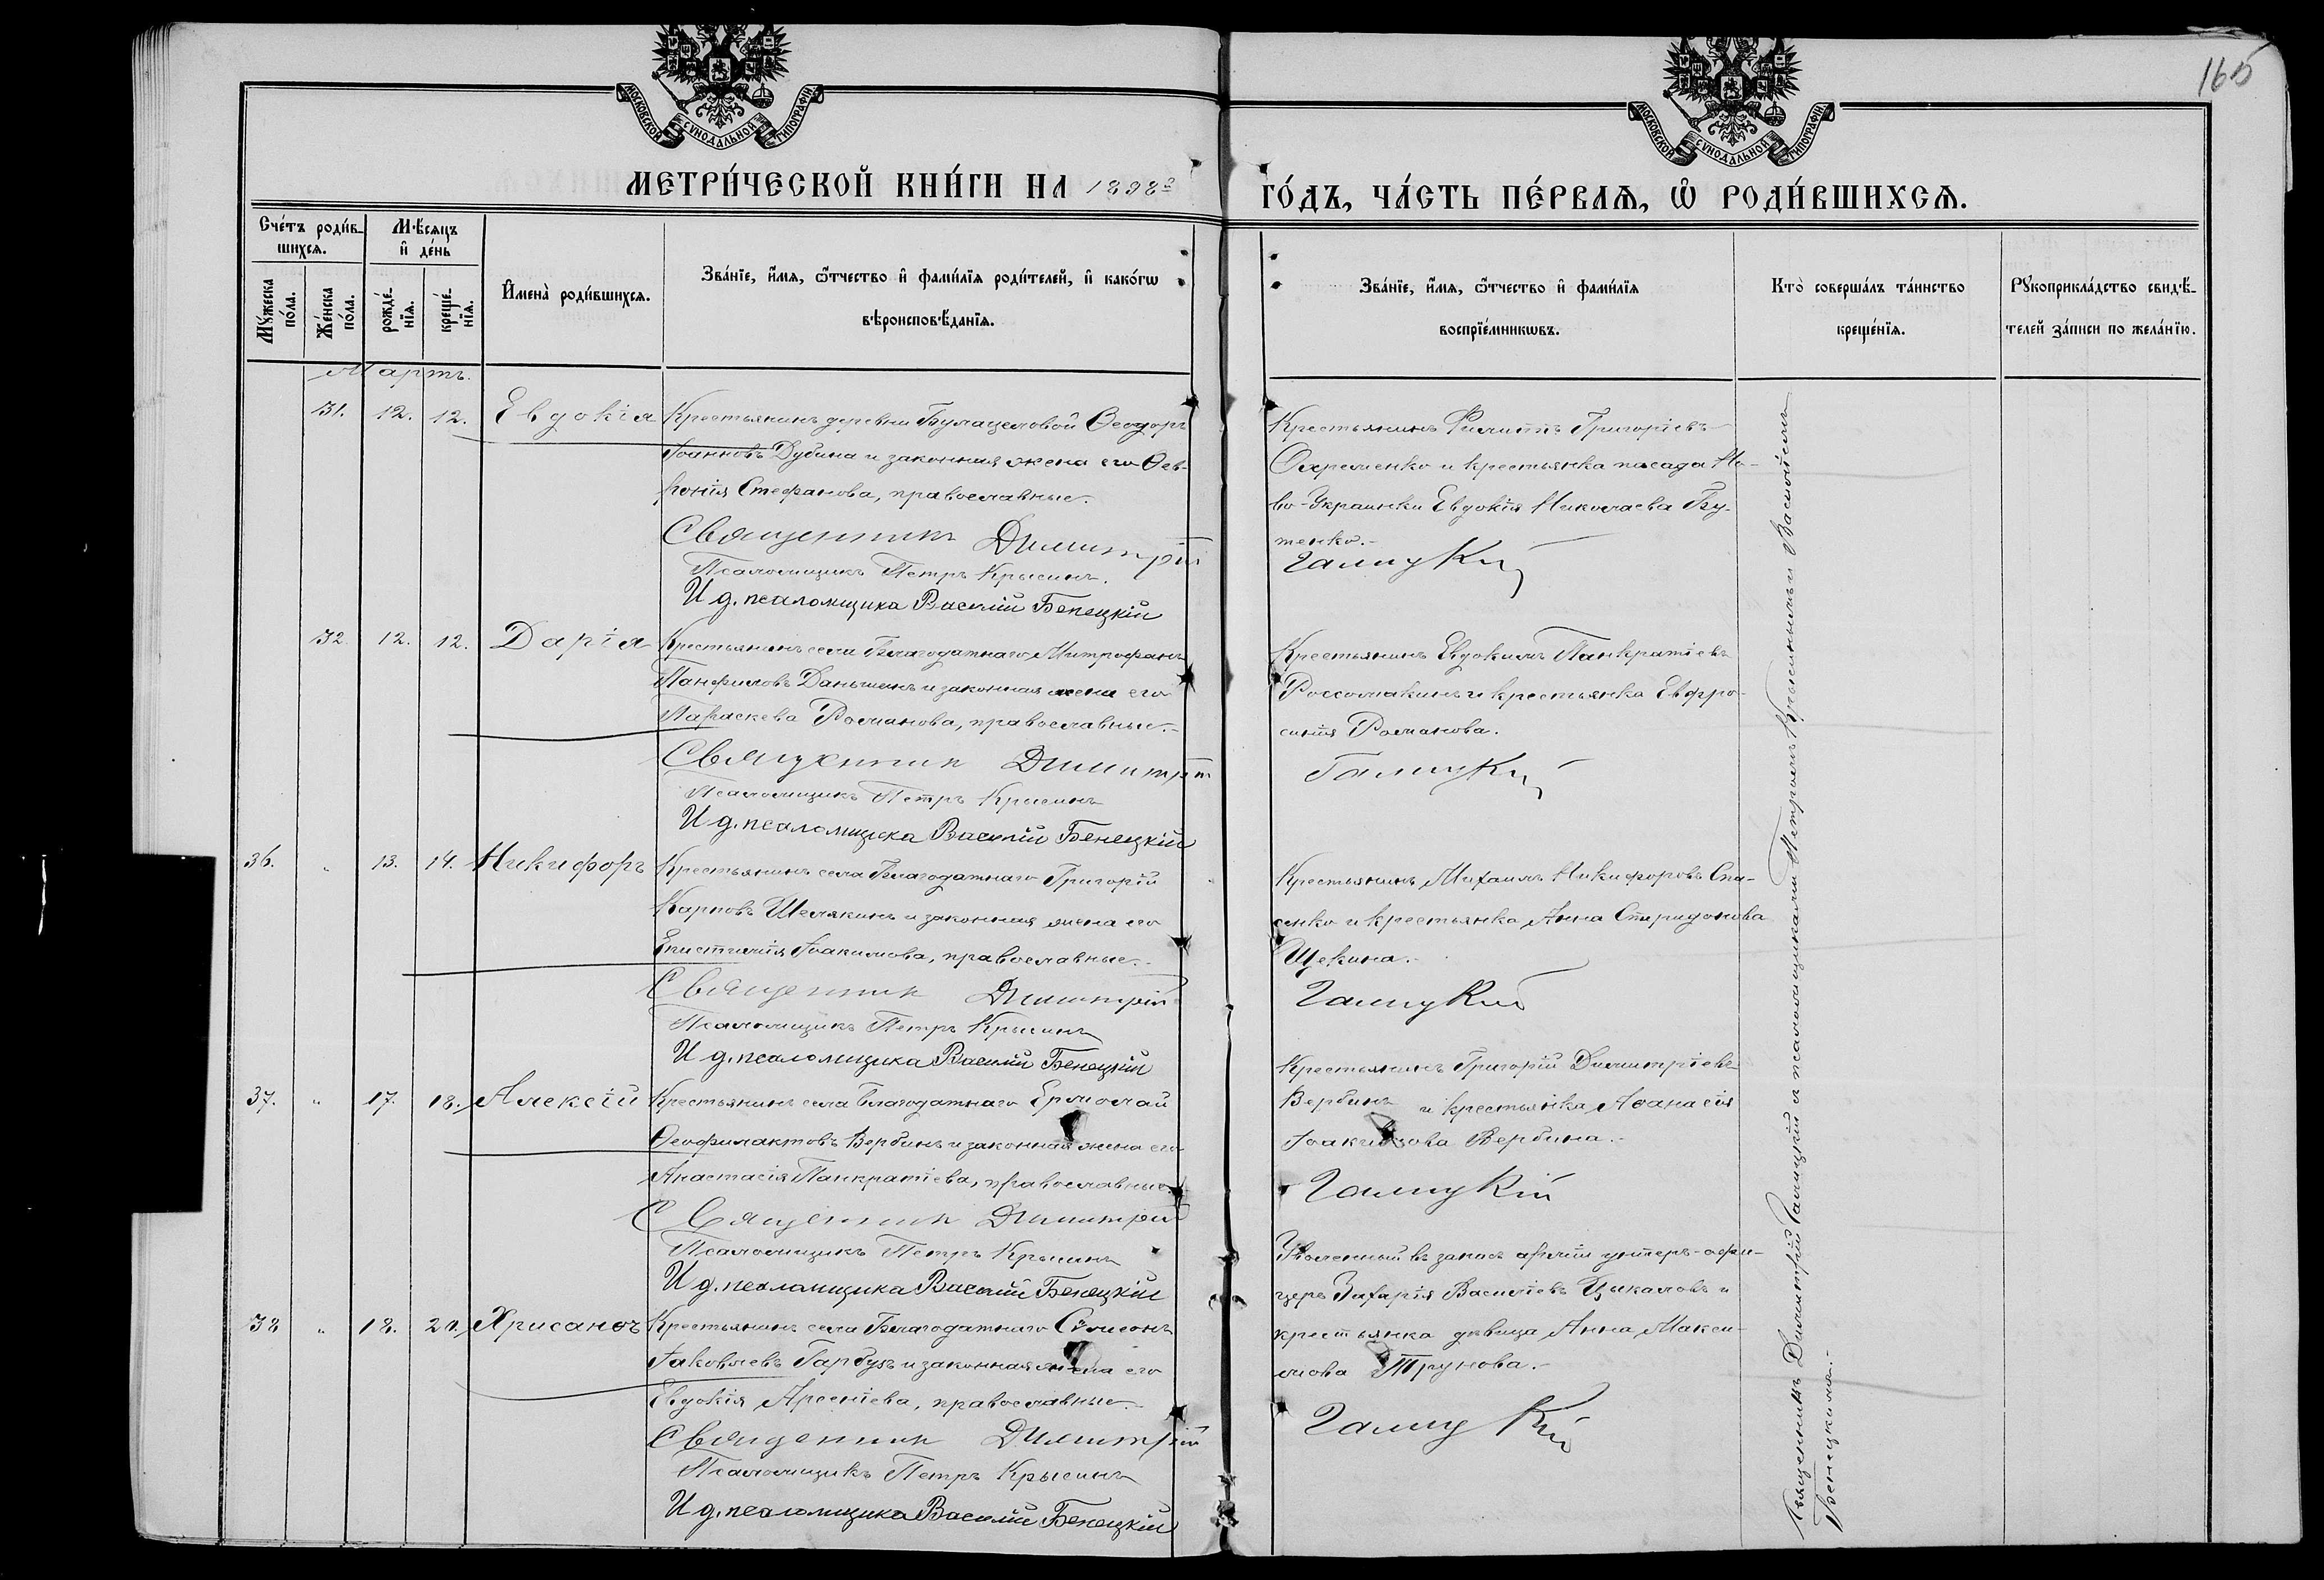 165
МОСКОВСКОЙ СУНОДАЛЬНОЙ ТИПОГРАФІИ
МОСКОВСКОЙ СУНОДАЛЬНОЙ ТИПОГРАФІИ
МЕТРИ́ЧЕСКОЙ КНИ́ГИ НА 1898й
ГО́ДЪ, ЧА́СТЬ ПЕ́РВАѦ, Ѡ҆ РОДИ́ВШИХСѦ.
Сче́тъ роди́в-
шихсѧ.
Мѣ́сяцъ
и҆ де́нь
Мꙋ́жеска по́ла.
Же́нска по́ла.
рожде́-нїѧ.
креще́-нїѧ.
И҆мена̀ роди́вшихсѧ.
Зва́нїе, и҆́мѧ, ѻ҆́тчество и҆ фами́лїѧ роди́телей, и҆ како́гѡ
вѣроисповѣ́данїѧ.
Зва́нїе, и҆́мѧ, ѻ҆́тчество и҆ фами́лїѧ
воспрїе́мникѡвъ.
Кто̀ соверша́лъ та́инство
креще́нїѧ.
Рꙋкоприкла́дство свидѣ́-
телей за́писи по жела́нїю.
Мартъ.
31. 12. 12. Евдокія Крестьянинъ деревни Булацеловой Ѳеодоръ
Іоанновъ Дубина и законная жена его Фев-
ронія Стефанова, православные.
Священникъ Димитрій
Псаломщикъ Петръ Крысинъ.
И д. псаломщика Василій Бенецкій
Крестьянинъ Филиппъ Григоріевъ
Охременко и крестьянка посада Но-
во-Украинки Евдокія Николаева Бу-
тенко.-
Галицкій
32. 12. 12. Дарія Крестьянинъ села Благодатнаго Митрофанъ
Панфиловъ Даньшенъ и законная жена его
Параскева Романова, православные.-
Священник Димитрій
Псаломщикъ Петръ Крысинъ
И д. псаломщика Василій Бенецкій
Крестьянинъ Евдокимъ Панкратіевъ
Россомакинъ и крестьянка Евфро-
синія Романова.
Галицкій
36. " 13. 14. Никифоръ Крестьянинъ села Благодатнаго Григорій
Карповъ Шелякинъ и законная жена его
Епистимія Іоакимова, православные.-
Священник Димитрій
Псаломщикъ Петръ Крысинъ
И д. псаломщика Василій Бенецкій
Крестьянинъ Михаилъ Никифоровъ Спа-
сенко и крестьянка Анна Спиридонова
Щекина.-
Галицкій
37. " 17. 18. Алексій Крестьянинъ села Благодатнаго Ермолай
Ѳеофилактовъ Вербинъ и законная жена его
Анастасія Панкратіева, православные.
Священник Димитрій
Псаломщикъ Петръ Крысинъ
И д. псаломщика Василій Бенецкій
Крестьянинъ Григорій Димитріевъ
Вербинъ и крестьянка Аѳанасія
Іоакимова Вербина.-
Галицкій
38 " 18. 20. Хрисанѳъ Крестьянинъ села Благодатнаго Сѵмеонъ
Іаковлевъ Гарбузъ и законная жена его
Евдокія Арсеніева, православные.-
Священник Димитрій
Псаломщикъ Петръ Крысинъ
И д. псаломщика Василій Бенецкій
Уволенный въ запасъ арміи унтеръ-офи-
церъ Захарія Василіевъ Цыкаловъ и
крестьянка дѣвица Анна Макси-
мова Трунова.-
Галицкій
Священникъ Димитрій Галицкій съ псаломщиками Петромъ Крысинымъ и Василіемъ
Бенецкимъ.-